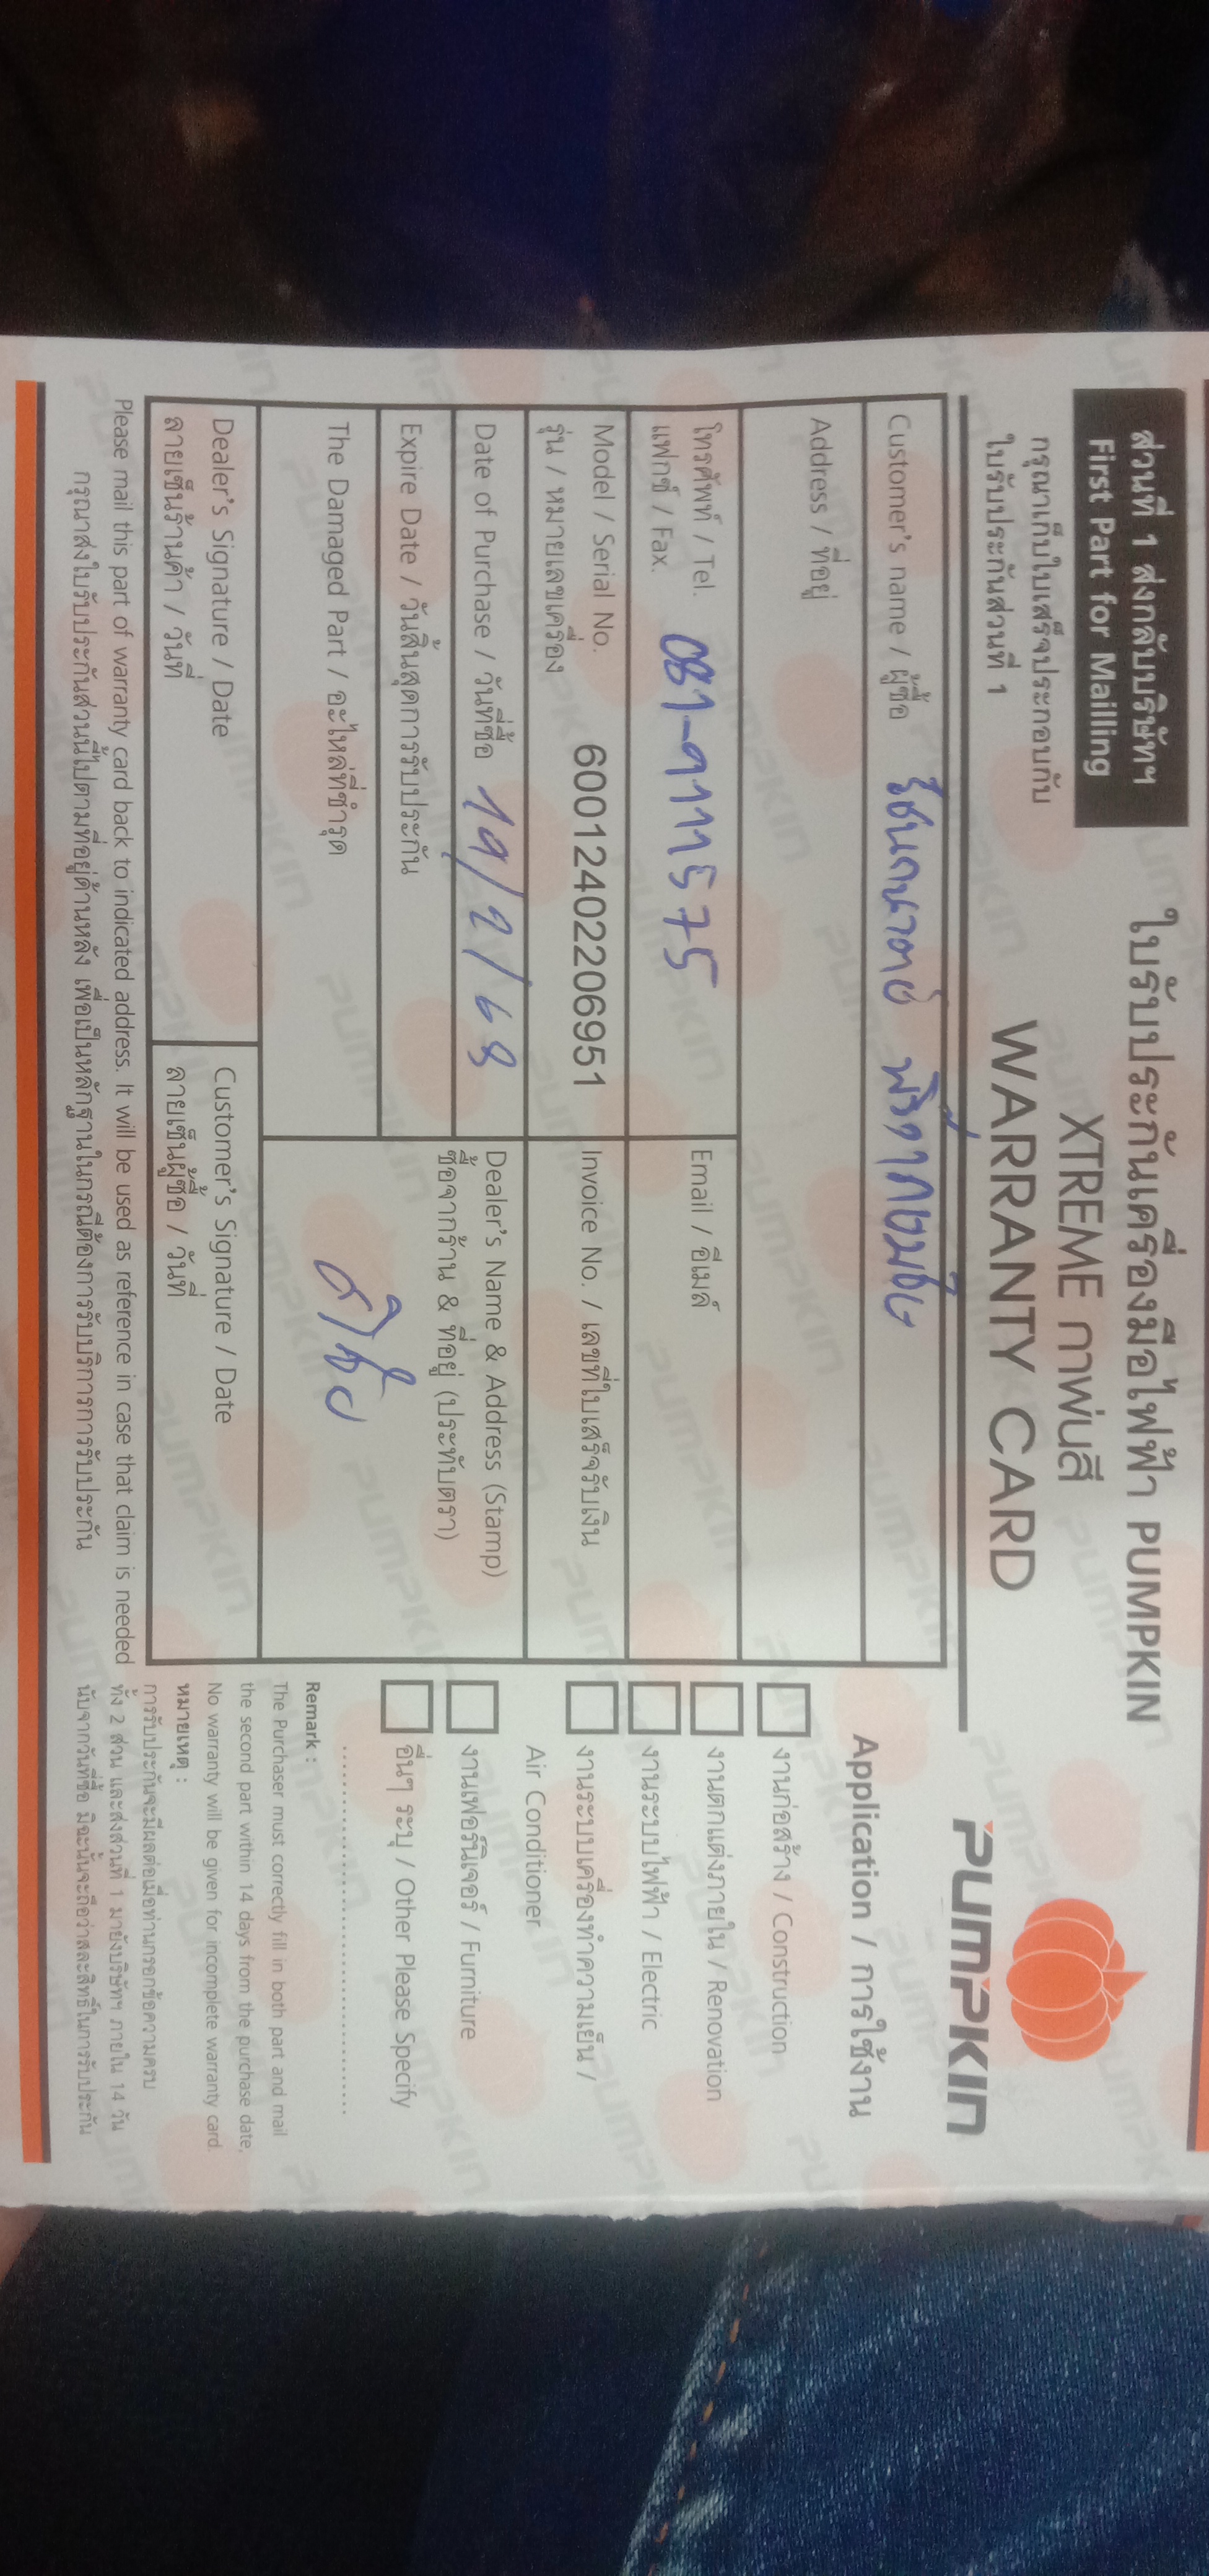 ส่วนที่ 1 ส่งกลับบริษัทฯ
First Part for Mailling
กรุณาเก็บใบเสร็จประกอบกับ
ใบรับประกันส่วนที่ 1
ใบรับประกันเครื่องมือไฟฟ้า PUMPKIN
XTREME กาพ่นสี
WARRANTY CARD
PUMPKIN
Customer's name / ผู้ซื้อ
Address / ที่อยู่
โทรศัพท์ / Tel. 081-9111575
แฟกซ์ / Fax.
Email / อีเมล์
Model / Serial No.
รุ่น / หมายเลขเครื่อง
600124022069​51
Invoice No. / เลขที่ใบเสร็จรับเงิน
Date of Purchase / วันที่ซื้อ 19/2/68
Expire Date / วันสิ้นสุดการรับประกัน
Dealer's Name & Address (Stamp)
ซื้อจากร้าน & ที่อยู่ (ประทับตรา)
The Damaged Part / อะไหล่ที่ชำรุด
Dealer's Signature / Date
ลายเซ็นร้านค้า / วันที่
Customer's Signature / Date
ลายเซ็นผู้ซื้อ / วันที่
Please mail this part of warranty card back to indicated address. It will be used as reference in case that claim is needed
กรุณาส่งใบรับประกันส่วนนี้ไปตามที่อยู่ด้านหลัง เพื่อเป็นหลักฐานในกรณีต้องการรับบริการการรับประกัน
Application / การใช้งาน
งานก่อสร้าง / Construction
งานตกแต่งภายใน / Renovation
งานระบบไฟฟ้า / Electric
งานระบบเครื่องทำความเย็น /
Air Conditioner
งานเฟอร์นิเจอร์ / Furniture
อื่นๆ ระบุ / Other Please Specify
Remark :
The Purchaser must correctly fill in both part and mail
the second part within 14 days from the purchase date,
No warranty will be given for incomplete warranty card.
หมายเหตุ :
การรับประกันจะมีผลต่อเมื่อท่านกรอกข้อความครบ
ทั้ง 2 ส่วน และส่งส่วนที่ 1 มายังบริษัทฯ ภายใน 14 วัน
นับจากวันที่ซื้อ มิฉะนั้นจะถือว่าสละสิทธิ์ในการรับประกัน